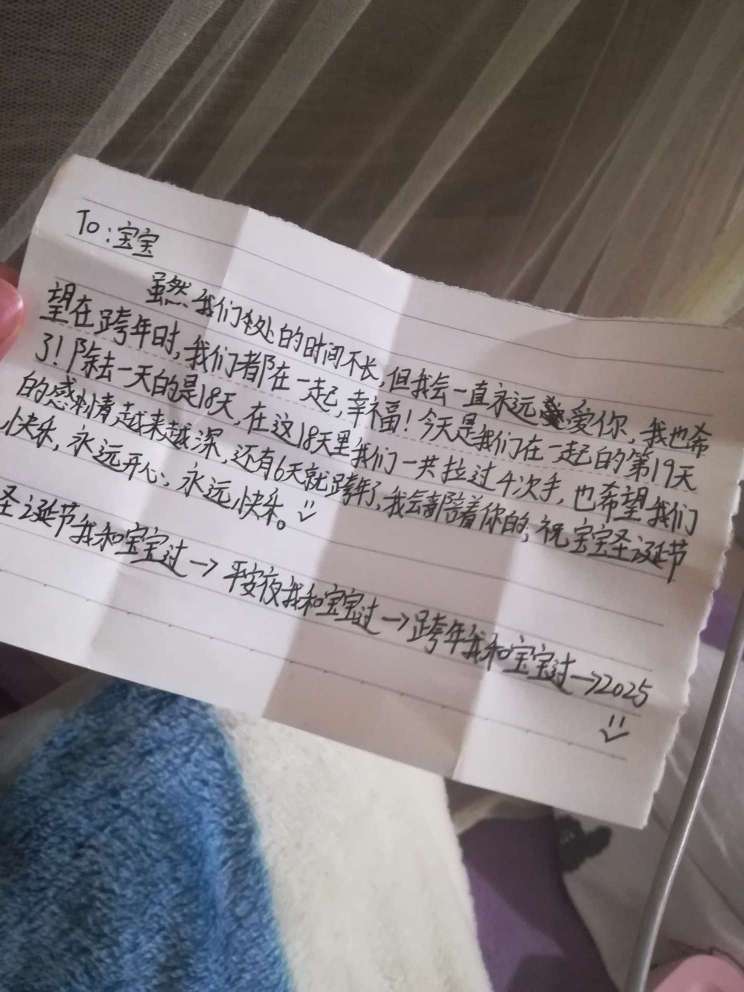 To:宝宝
虽然我们相处的时间不长,但我会一直永远爱你,我也希
望在跨年时,我们都在一起,幸福!今天是我们在一起的第19天
了!除去一天的是18天,在这18天里我们一共拉过4次手,也希望我们
的感情越来越深,还有6天就跨年了,我会都陪着你的,祝宝宝圣诞节
快乐,永远开心、永远快乐。
圣诞节我和宝宝过→平安夜我和宝宝过→跨年我和宝宝过→2025